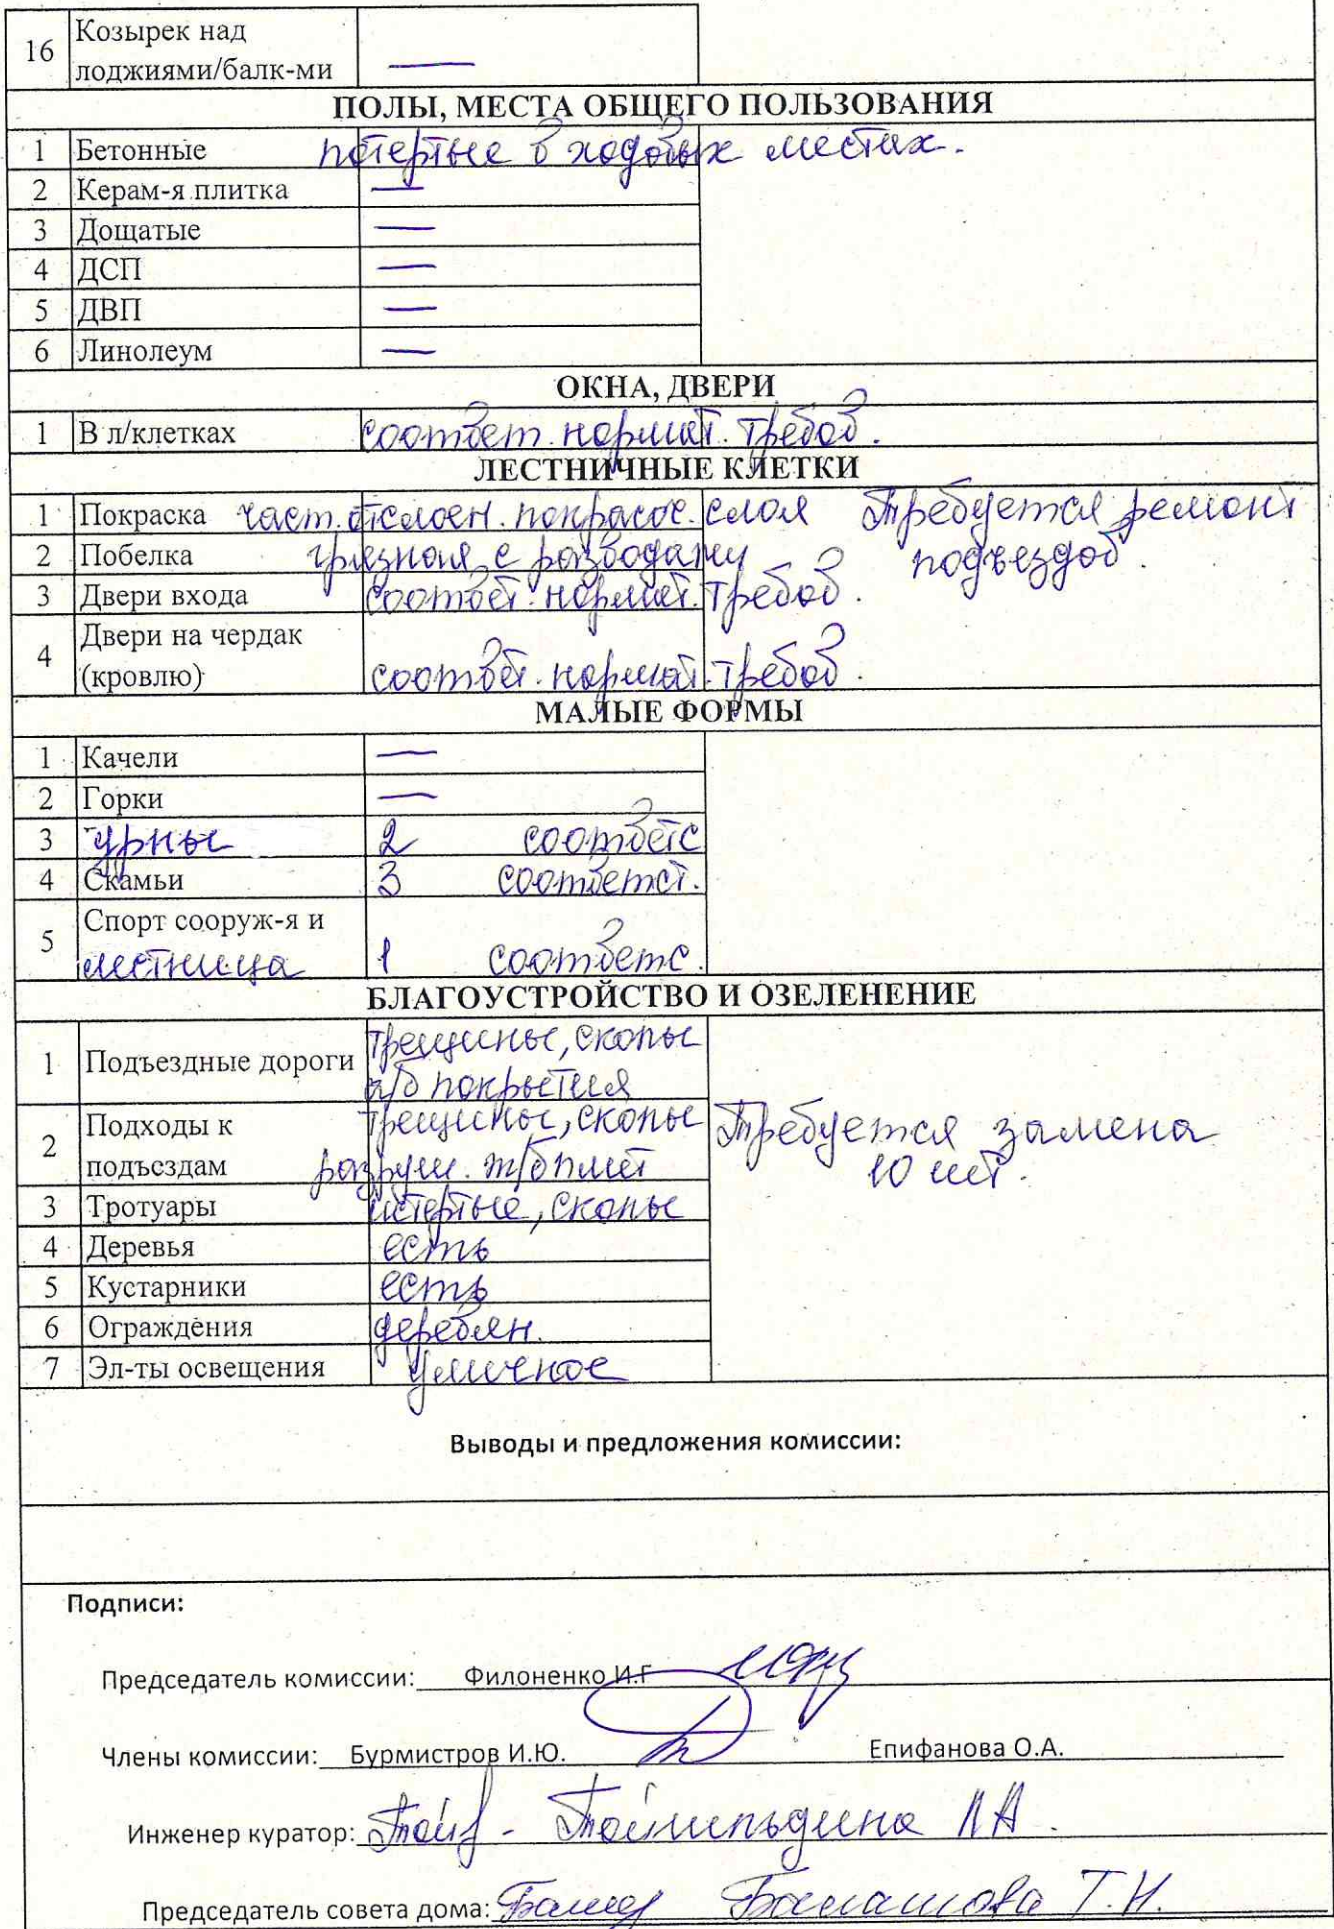 16 Козырек над
лоджиями/балк-ми —
ПОЛЫ, МЕСТА ОБЩЕГО ПОЛЬЗОВАНИЯ
1 Бетонные потертые в ходовых местах.
2 Керам-я плитка —
3 Дощатые —
4 ДСП —
5 ДВП —
6 Линолеум —
ОКНА, ДВЕРИ
1 В л/клетках соответ. нормат. требов.
ЛЕСТНИЧНЫЕ КЛЕТКИ
1 Покраска част. отслоен. покрасоч. слоя Требуется ремонт
2 Побелка грязная с разводами подъездов.
3 Двери входа соответ. нормат. требов.
Двери на чердак
4 (кровлю) соответ. нормат. требов.
МАЛЫЕ ФОРМЫ
1 Качели —
2 Горки —
3 Урны 2 соответс
4 Скамьи 3 соответст.
Спорт сооруж-я и
5 лестница 1 соответс.
БЛАГОУСТРОЙСТВО И ОЗЕЛЕНЕНИЕ
1 Подъездные дороги трещины, сколы
а/б покрытия
2 Подходы к трещины, сколы Требуется замена
подъездам разруш. ж/б плит 10 шт.
3 Тротуары истертые, сколы
4 Деревья есть
5 Кустарники есть
6 Ограждения деревян.
7 Эл-ты освещения уличное
Выводы и предложения комиссии:
Подписи:
Председатель комиссии: Филоненко И.Г
Члены комиссии: Бурмистров И.Ю. Епифанова О.А.
Инженер куратор: - Л А.
Председатель совета дома: Т.Н.